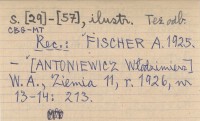 s. [29]-[57], ilustr. Toż odb.
CBG-MT
Rec.: FISCHER A. 1925.
- [ANTONIEWICZ Włodzimierz]
W. A., Ziemia 11, r. 1926, nr
13-14: 213.
MT